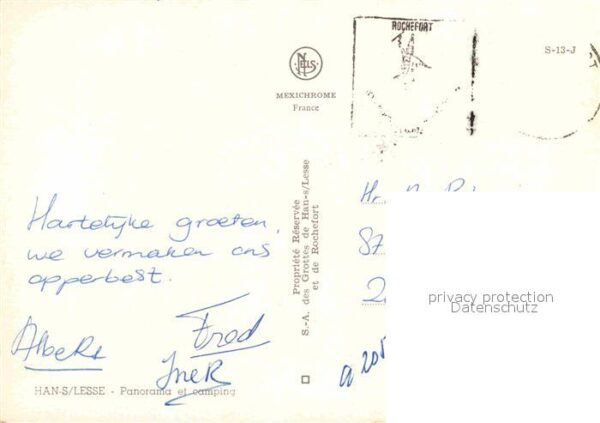 ROCHEFORT
S-13-J
NELS
MEXICHROME
France
Propriété Réservée
S.-A. des Grottes de Han-s/Lesse
et de Rochefort
Hartelijke groeten,
we vermaken ons
opperbest.
Fred
HAN-S/LESSE - Panorama et camping
privacy protection
Datenschutz